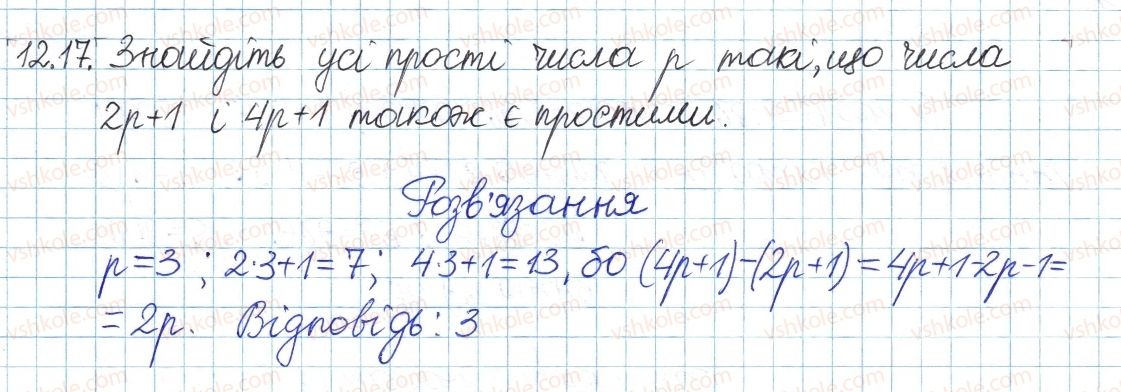 12.17. Знайдіть усі прості числа p такі, що числа
2p+1 і 4p+1 також є простими.
Розв'язання
p=3; 2·3+1=7; 4·3+1=13, бо (4p+1)-(2p+1)=4p+1-2p-1=
=2p. Відповідь: 3